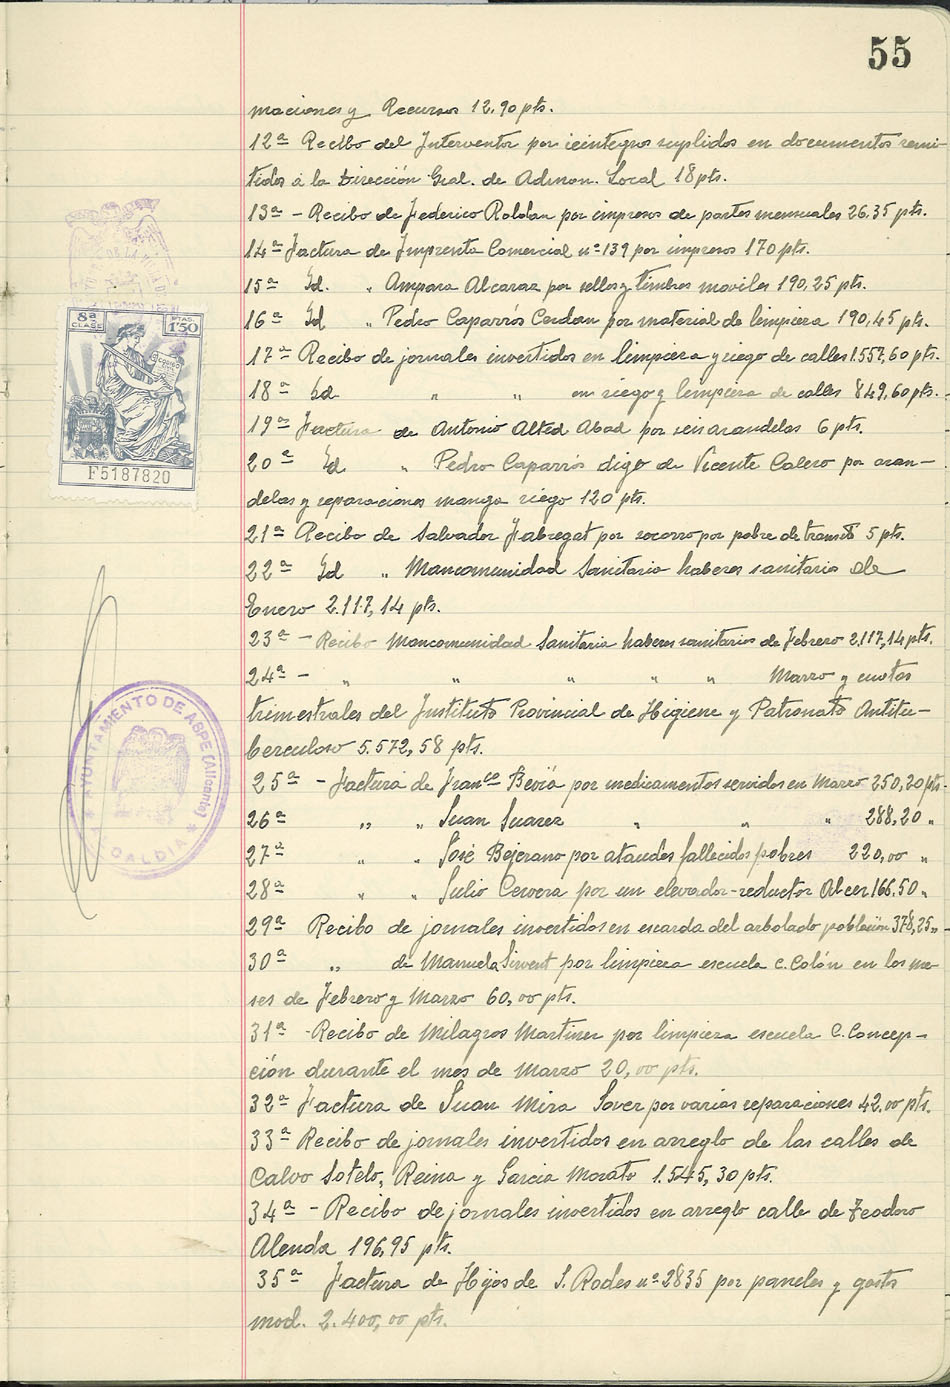 55
maciones y Recursos 12,90 pts.
12ª Recibo del Interventor por reintegros suplidos en documentos remi-
tidos a la Dirección Gral. de Admon. Local 18 pts.
13ª - Recibo de Federico Roldan por impresos de partes mensuales 26.35 pts.
14ª Factura de Imprenta Comercial nº 139 por impresos 170 pts.
15ª Id. " Ampara Alcaraz por sellos y timbres moviles 190,25 pts.
16ª Id " Pedro Caparrós Cerdan por material de limpieza 190,45 pts.
17ª Recibo de jornales invertidos en limpieza y riego de calles 1.557,60 pts.
18ª Id " " en riego y limpieza de calles 849,60 pts.
19ª Factura de Antonio Alted Abad por seis arandelas 6 pts.
20ª Id " Pedro Caparrós digo de Vicente Calero por aran-
delas y reparaciones manga riego 120 pts.
21ª Recibo de Salvador Fabregat por socorro por pobre de transito 5 pts.
22ª Id " Mancomunidad Sanitaria haberes sanitaria de
Enero 2.117,14 pts.
23ª - Recibo Mancomunidad Sanitaria haberes sanitarios de Febrero 2.117,14 pts.
24ª - " " " " " Marzo y cuotas
trimestrales del Instituto Provincial de Higiene y Patronato Antitu-
berculoso 5.572,58 pts.
25ª - Factura de Franco Beviá por medicamentos servidos en Marzo 250,20 pts.
26ª " " Juan Suarez " " " 288,20 "
27ª " " José Bejerano por ataudes fallecidos pobres 220,00 "
28ª " " Julio Cervera por un elevador-reductor Alcer 166.50 "
29ª Recibo de jornales invertidos en escarda del arbolado población 378,25 "
30ª " de Manuela Sirvent por limpieza escuela C. Colón en los me-
ses de Febrero y Marzo 60,00 pts.
31ª - Recibo de Milagros Martinez por limpieza escuela C. Concep-
ción durante el mes de Marzo 20,00 pts.
32ª Factura de Juan Mira Sover por varias reparaciones 42,00 pts.
33ª Recibo de jornales invertidos en arreglo de las calles de
Calvo Sotelo, Reina y Garcia Morato 1.545,30 pts.
34ª - Recibo de jornales invertidos en arreglo calle de Teodoro
Alenda 196,95 pts.
35ª Factura de Hijos de J. Rodes nº 2835 por paneles y gasts
mod. 2.400,00 pts.
8ª CLASE
PTAS. 1'50
F5187820
AYUNTAMIENTO DE ASPE (Alicante)
* ALCALDIA *